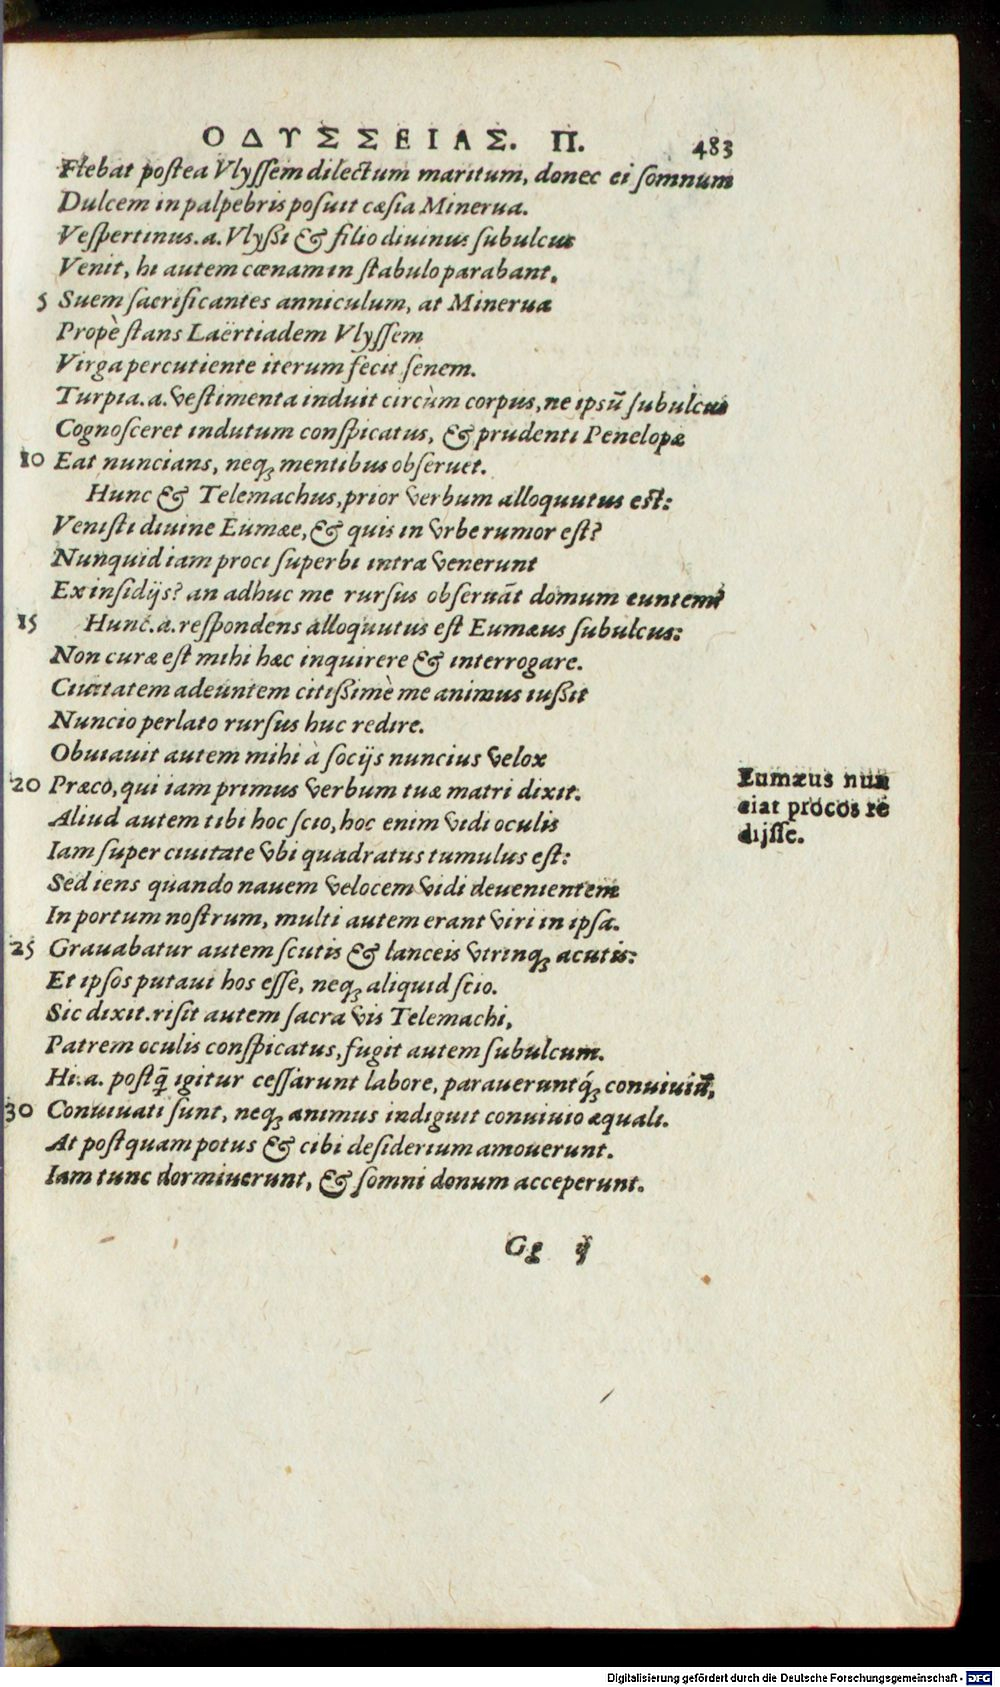 ΟΔΥΣΣΕΙΑΣ. Π. 483
Flebat postea Vlyssem dilectum maritum, donec ei somnum
Dulcem in palpebris posuit cæsia Minerua.
Vespertinus.a.Vlyßi & filio diuinus subulcus
Venit, hi autem cœnam in stabulo parabant,
5 Suem sacrificantes anniculum, at Minerua
Propè stans Laërtiadem Vlyssem
Virga percutiente iterum fecit senem.
Turpia.a.vestimenta induit circùm corpus, ne ipsũ subulcus
Cognosceret indutum conspicatus, & prudenti Penelopæ
10 Eat nuncians, neq; mentibus obseruet.
Hunc & Telemachus, prior verbum alloquutus est:
Venisti diuine Eumæe, & quis in vrbe rumor est?
Nunquid iam proci superbi intra venerunt
Ex insidijs? an adhuc me rursus obseruãt domum euntem?
15 Hunc.a.respondens alloquutus est Eumæus subulcus:
Non curæ est mihi hæc inquirere & interrogare.
Ciuitatem adeuntem citißimè me animus iußit
Nuncio perlato rursus huc redire.
Obuiauit autem mihi à socijs nuncius velox
20 Præco, qui iam primus verbum tuæ matri dixit.
Aliud autem tibi hoc scio, hoc enim vidi oculis
Iam super ciuitate vbi quadratus tumulus est:
Sed iens quando nauem velocem vidi deuenientem
In portum nostrum, multi autem erant viri in ipsa.
25 Grauabatur autem scutis & lanceis vtrinq; acutis:
Et ipsos putaui hos esse, neq; aliquid scio.
Sic dixit.risit autem sacra vis Telemachi,
Patrem oculis conspicatus, fugit autem subulcum.
Hi.a. postq̃ igitur cessarunt labore, paraueruntq́; conuiuiũ,
30 Conuiuati sunt, neq; animus indiguit conuiuio æquali.
At postquam potus & cibi desiderium amouerunt.
Iam tunc dormiuerunt, & somni donum acceperunt.
Eumæus nun
ciat procos re
dijsse.
Gg ij
Digitalisierung gefördert durch die Deutsche Forschungsgemeinschaft - DFG